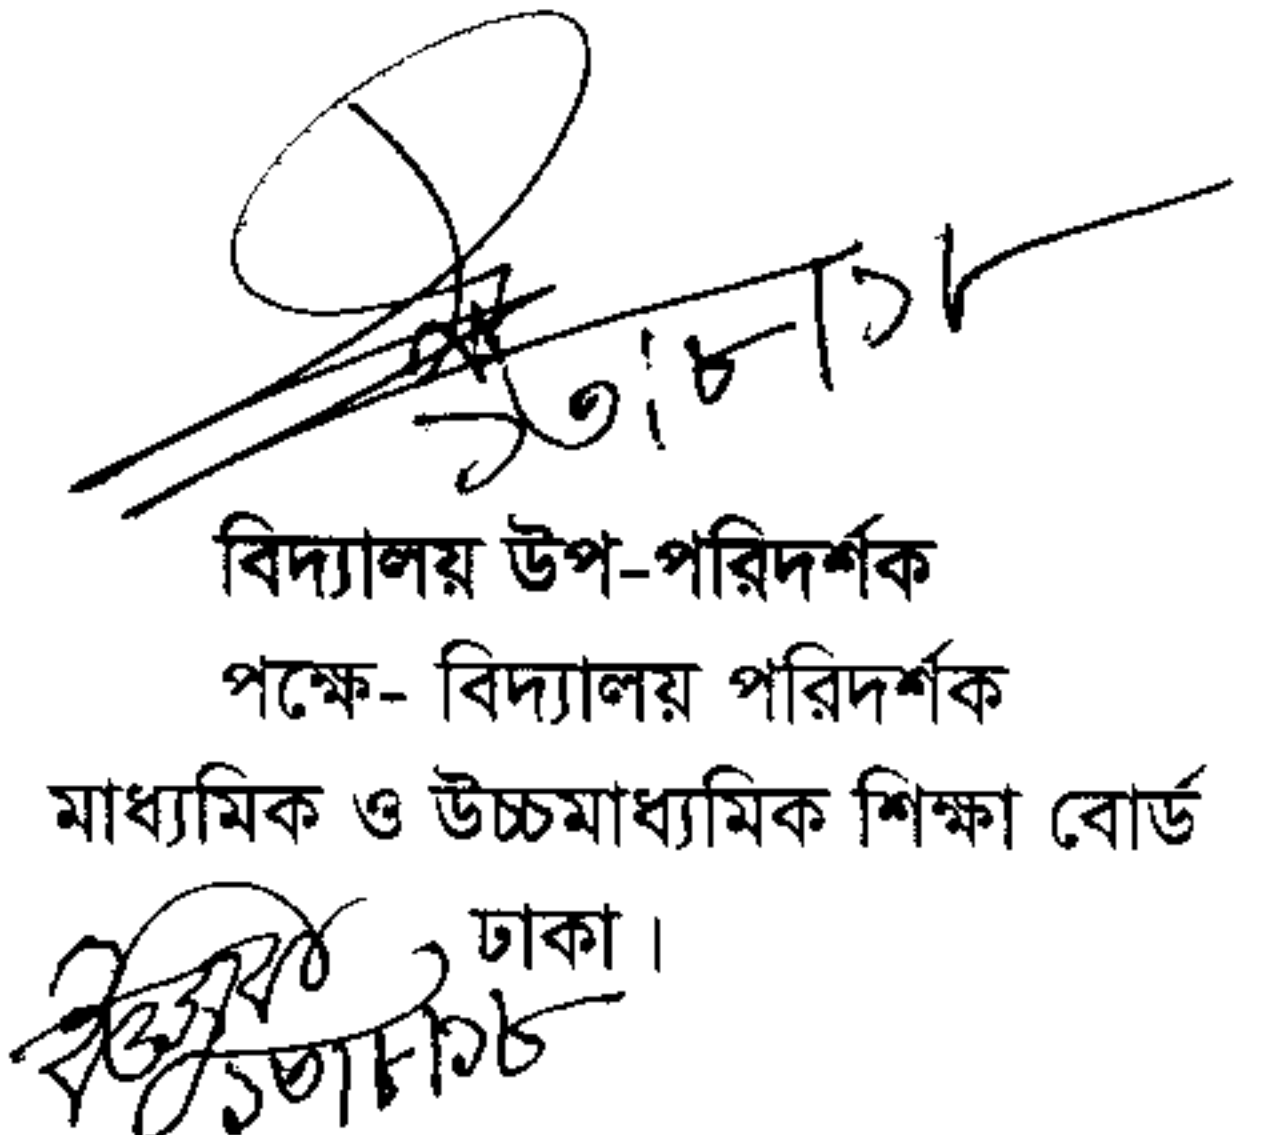 ১৩/৮/১৮
বিদ্যালয় উপ-পরিদর্শক
পক্ষে- বিদ্যালয় পরিদর্শক
মাধ্যমিক ও উচ্চমাধ্যমিক শিক্ষা বোর্ড
ঢাকা।
১৩/৮/১৮